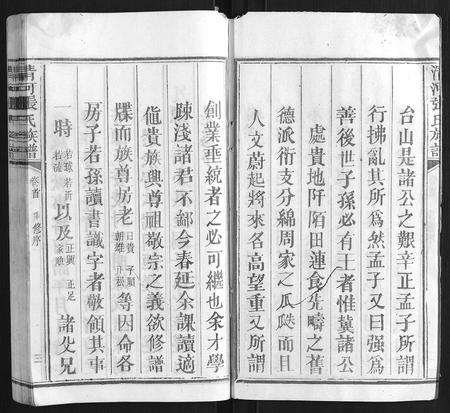 清河張氏族譜
台山是諸公之艱辛正孟子所謂
行拂亂其所為然孟子又曰強為
善後世子孫必有王者惟冀諸公
處貴地阡陌田連食先疇之舊
德派衍支分綿周家之瓜瓞而且
人文蔚起將來名高望重又所謂
創業垂統者之必可繼也余才學
踈淺諸君不鄙今春延余課讀適
值貴族興尊祖敬宗之義欲修譜
牒而族尊房老 等因命各
房子若孫讀書識字者敬領其事
一時 以及 諸父兄
清河張氏族譜
卷首
修序
三